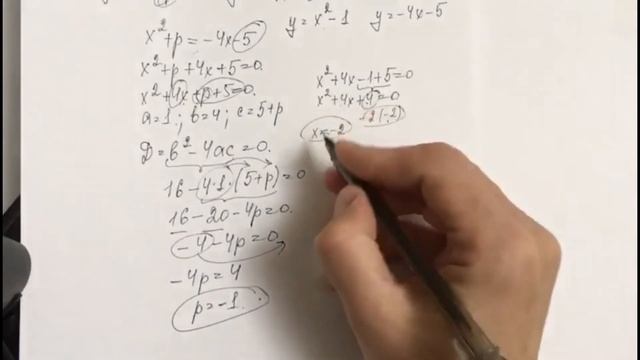 y = x² - 1   y = -4x - 5
x² + p = -4x - 5
x² + p + 4x + 5 = 0.
x² + 4x + p + 5 = 0.
a = 1 ; b = 4 ; c = 5 + p
D = b² - 4ac = 0.
16 - 4·1·(5+p) = 0
16 - 20 - 4p = 0.
-4 - 4p = 0
-4p = 4
p = -1.
x² + 4x - 1 + 5 = 0
x² + 4x + 4 = 0
-2 (-2)
x = -2